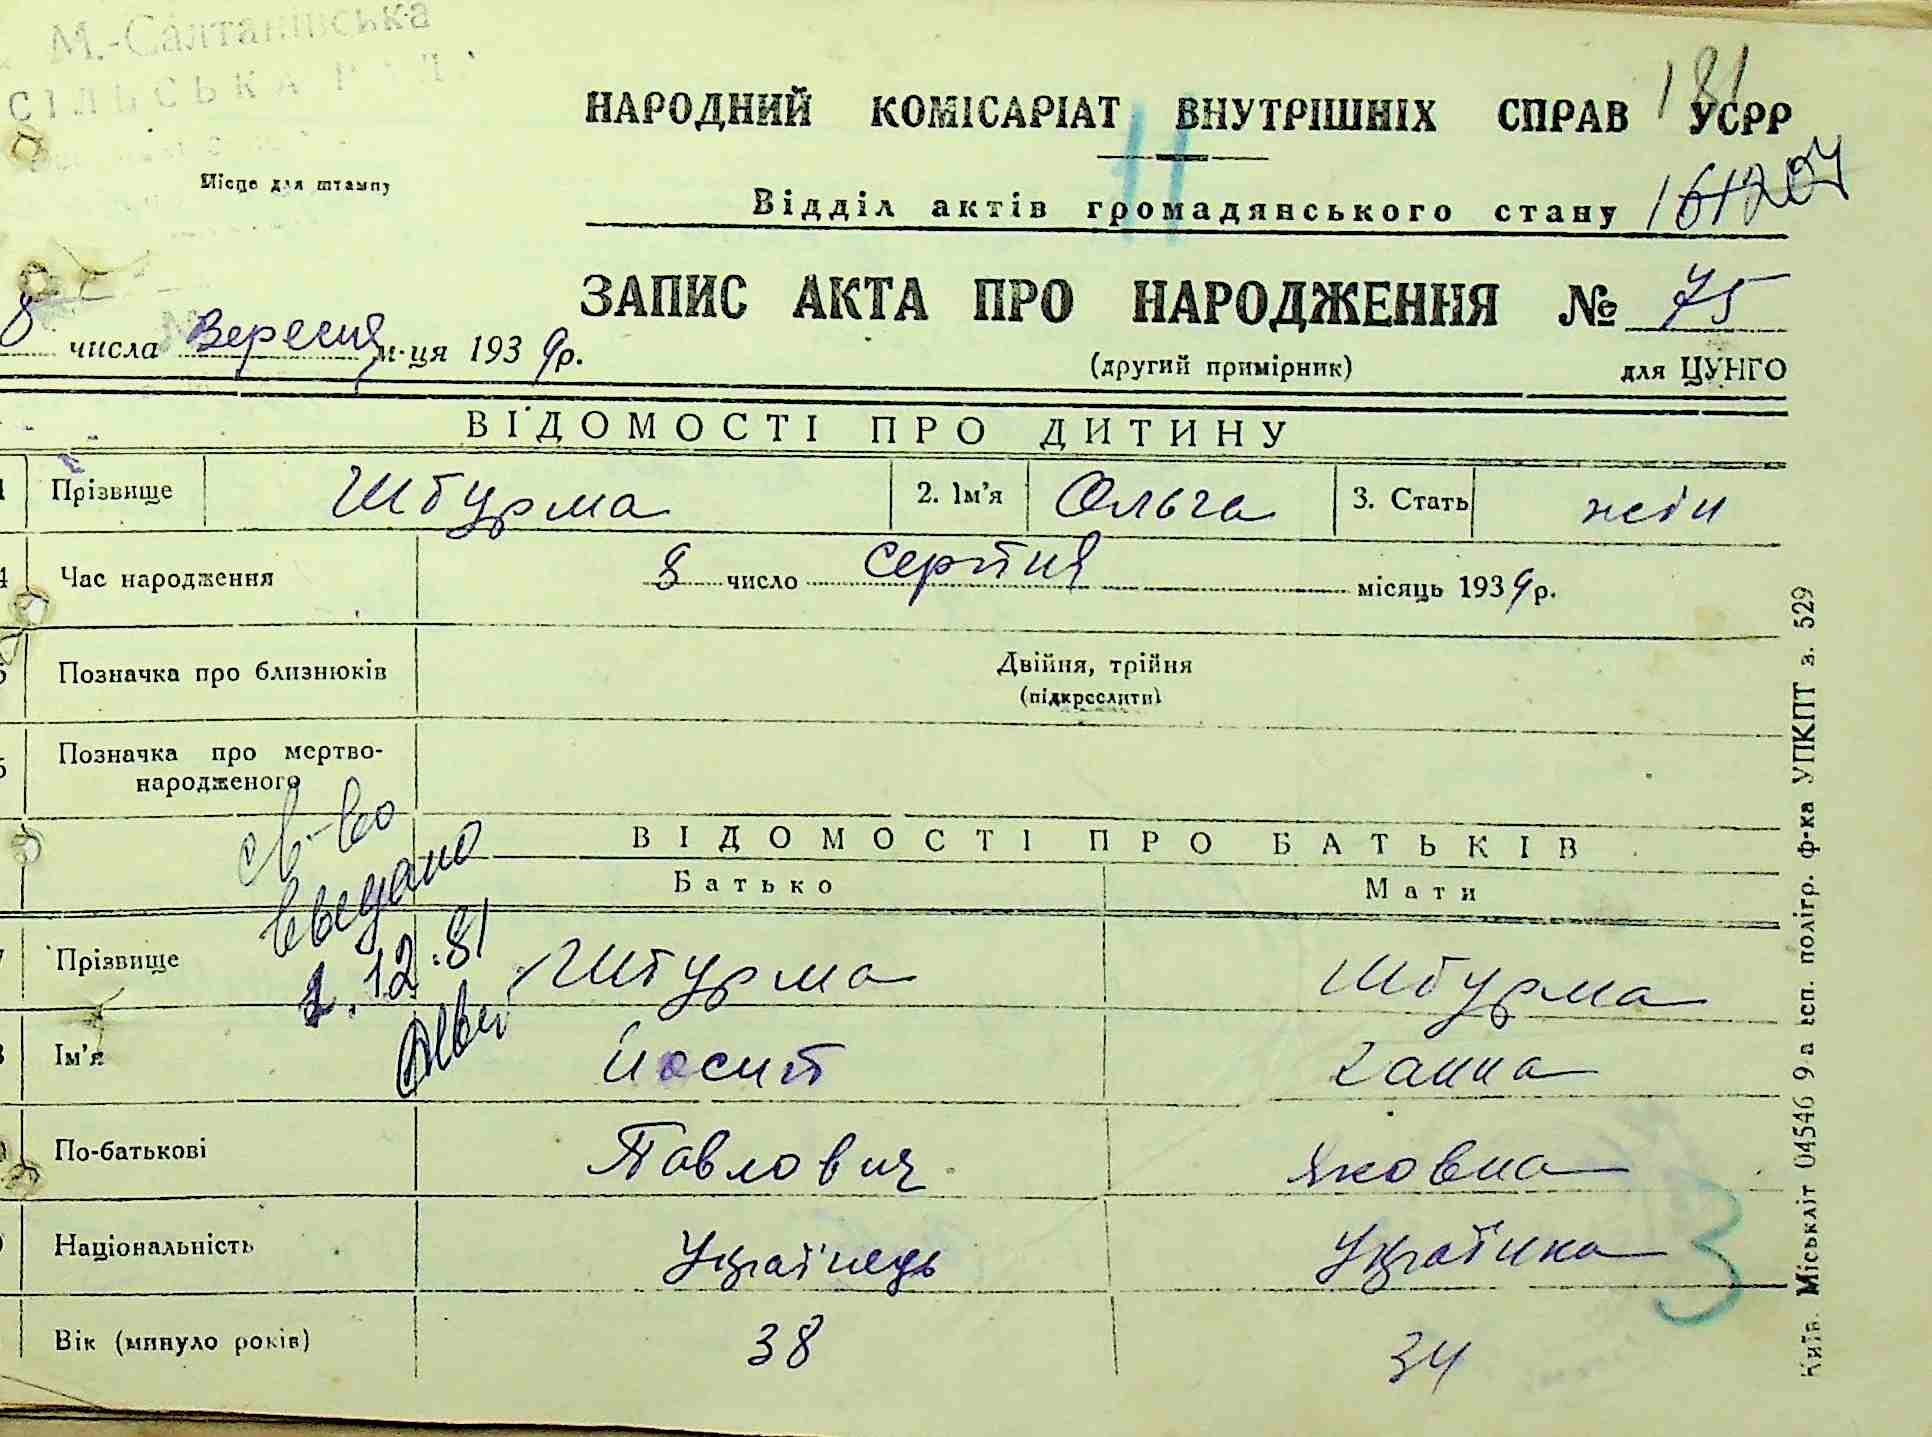 М.-Салтанівська
СІЛЬСЬКА РАДА
Місце для штампу
181
НАРОДНИЙ КОМІСАРІАТ ВНУТРІШНІХ СПРАВ УСРР
11
Відділ актів громадянського стану
ЗАПИС АКТА ПРО НАРОДЖЕННЯ № 75
8 числа Вересня м-ця 1939 р.
(другий примірник) для ЦУНГО
ВІДОМОСТІ ПРО ДИТИНУ
Прізвище Штурма 2. Ім'я Ольга 3. Стать жін
4 Час народження 8 число серпня місяць 1939 р.
5 Позначка про близнюків Двійня, трійня
(підкреслити)
6 Позначка про мертво-
народженого
св-во
выдано
1.12.81
ВІДОМОСТІ ПРО БАТЬКІВ
Батько Мати
7 Прізвище Штурма Штурма
8 Ім'я Йосип Ганна
По-батькові Павлович Яковна
Національність Українець Українка
3
Вік (минуло років) 38 34
Київ. Міськліт 04546 9-а есп. полігр. ф-ка УПКПТ з. 529